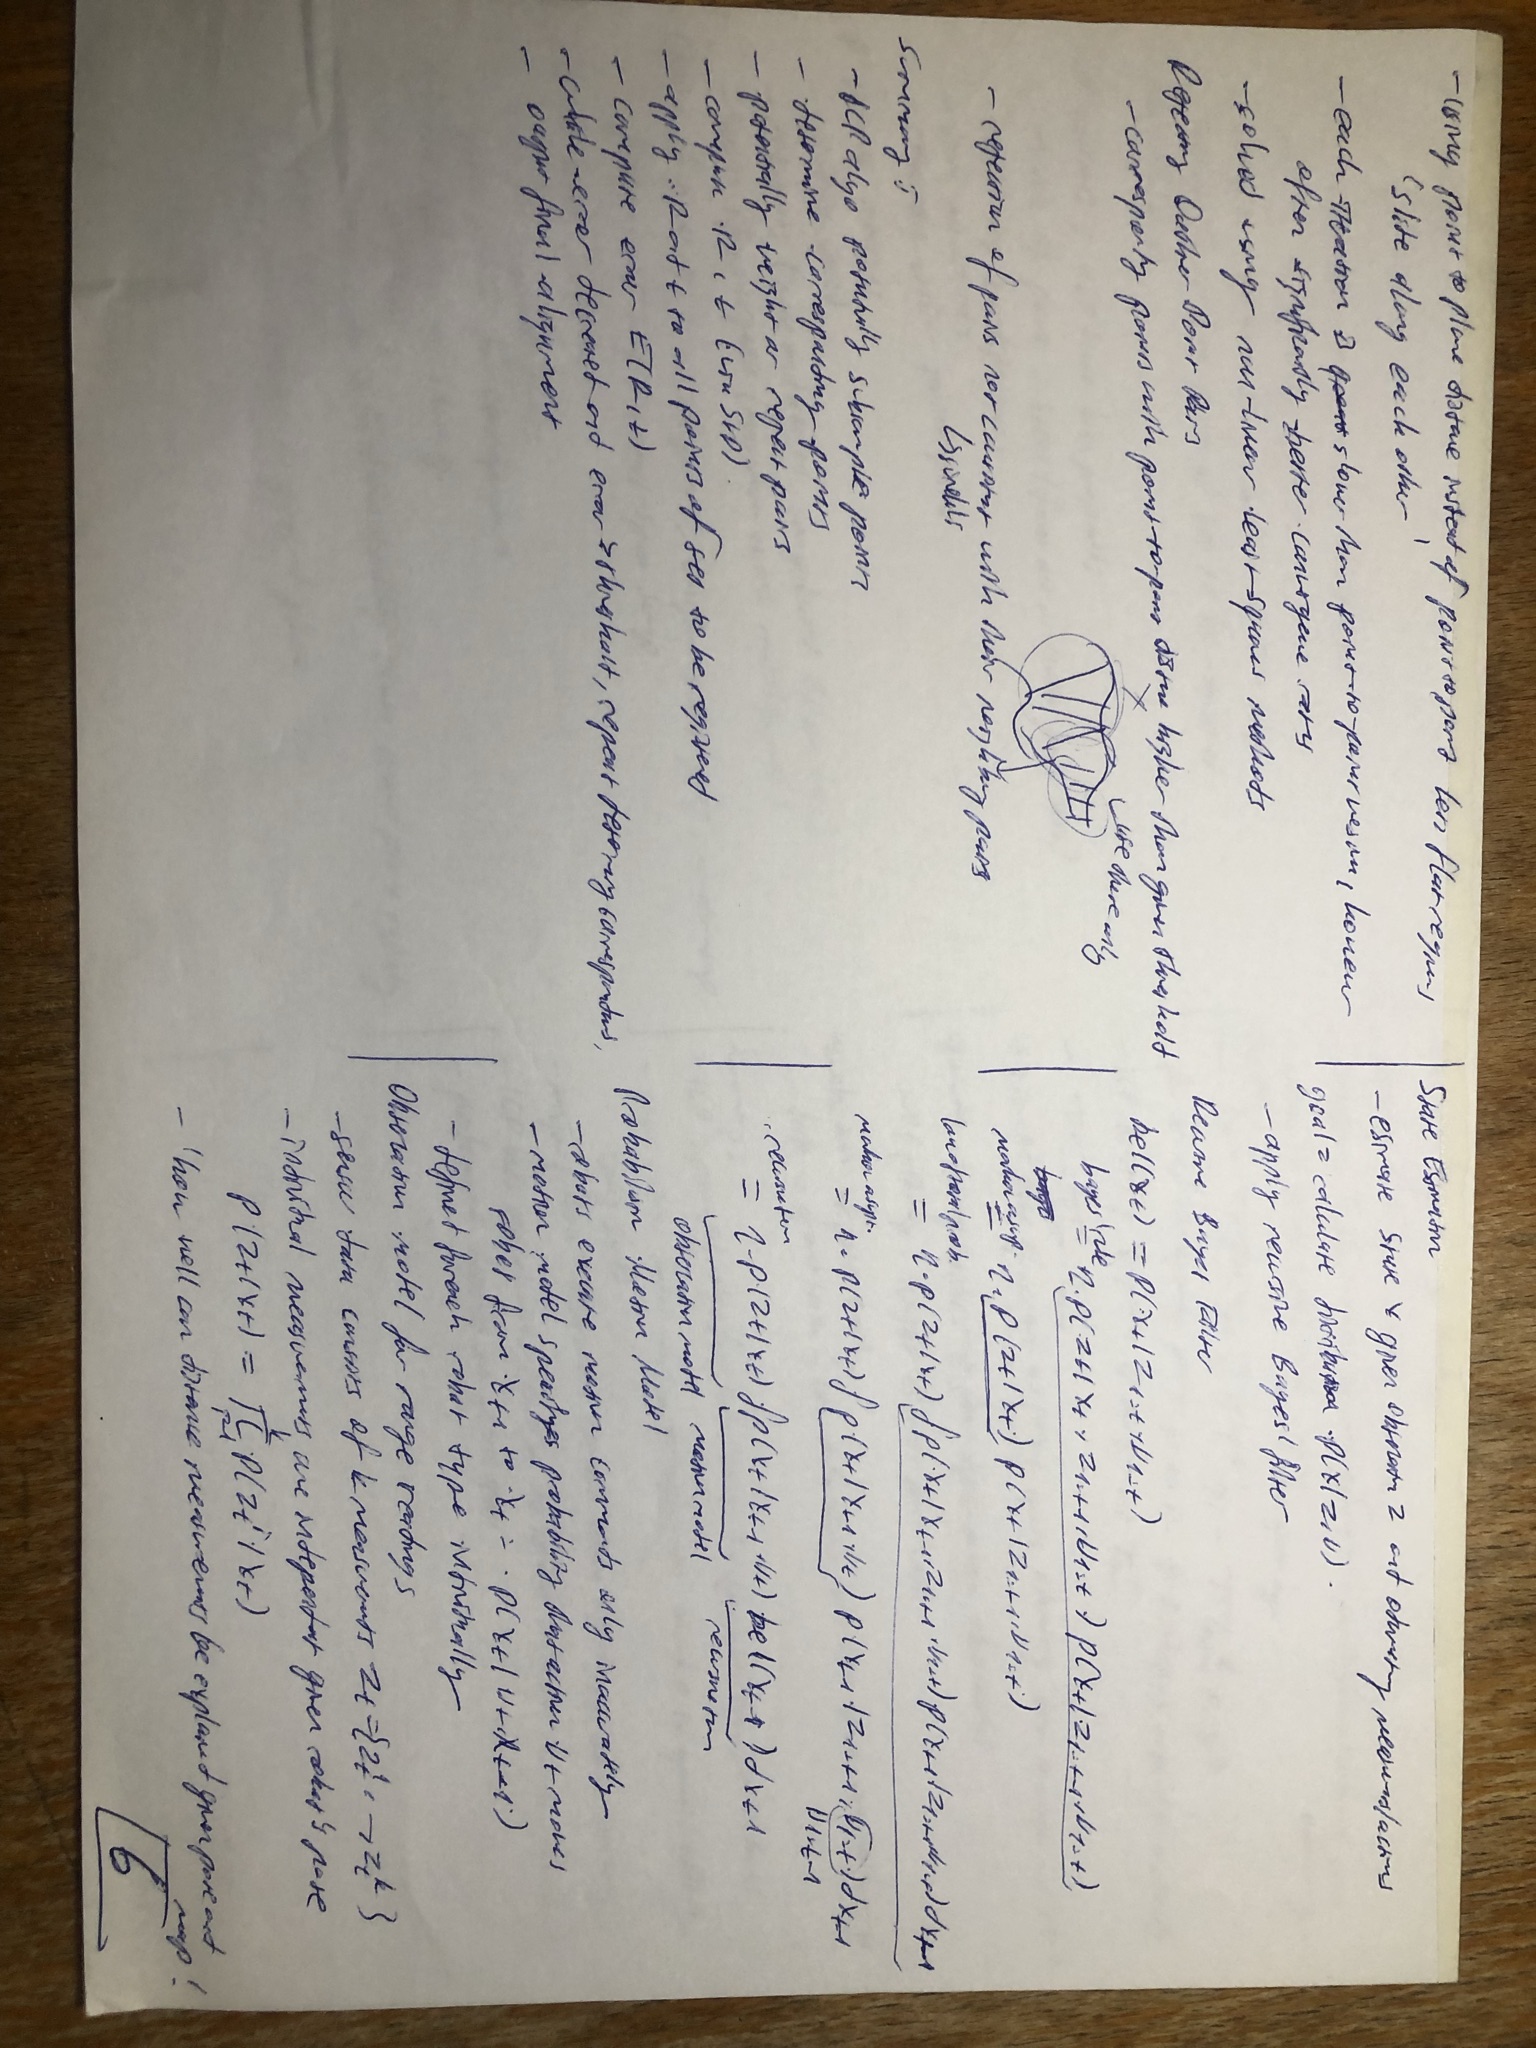 - using point to plane distance instead of point to point lets flat regions
"slide along each other"
- each iteration is slower than point-to-point version, however
often significantly better convergence rates
- solved using non-linear least-squares methods
Rejecting Outlier Point Pairs
- corresponding points with point-to-point distance higher than given threshold
use these only
- rejection of pairs not consistent with their neighboring pairs
Summary:
- ICP algo potentially subsample points
- determine corresponding points
- potentially weight or reject pairs
- compute R, t (via SVD)
- apply R and t to all points of set to be registered
- compute error E(R,t)
- while error decreased and error > threshold, repeat determining correspondences,
- output final alignment
State Estimation
- estimate state x given observation z and
goal = calculate distribution p(x|z,u).
- apply recursive Bayes' filter
Recursive Bayes Filter
bel(x_t) = p(x_t | z_{1:t}, u_{1:t})
bayes' rule = η · p(z_t | x_t, z_{1:t-1}, u_{1:t}) p(x_t | z_{1:t-1}, u_{1:t})
markov = η · p(z_t | x_t) p(x_t | z_{1:t-1}, u_{1:t})
= η · p(z_t | x_t) ∫ p(x_t | x_{t-1}, z_{1:t-1}, u_{1:t}) p(x_{t-1} | z_{1:t-1}, u_{1:t}) dx_{t-1}
markov = η · p(z_t | x_t) ∫ p(x_t | x_{t-1}, u_t) p(x_{t-1} | z_{1:t-1}, u_{1:t}) dx_{t-1}
u_{1:t-1}
recursion = η · p(z_t | x_t) ∫ p(x_t | x_{t-1}, u_t) bel(x_{t-1}) dx_{t-1}
observation model motion model recursion
Probabilistic Motion Model
- robots execute motion commands only inaccurately
- motion model specifies probability that action u_t moves
robot from x_{t-1} to x_t = p(x_t | u_t, x_{t-1})
- defined for each robot type individually
Observation model for range readings
- sensor data consists of k measurements z_t = {z_t^1, → z_t^k}
- individual measurements are independent given robot's pose
p(z_t | x_t) = ∏_{i=1}^k p(z_t^i | x_t)
- 'how well can distance measurements be explained given pose and
map'
6